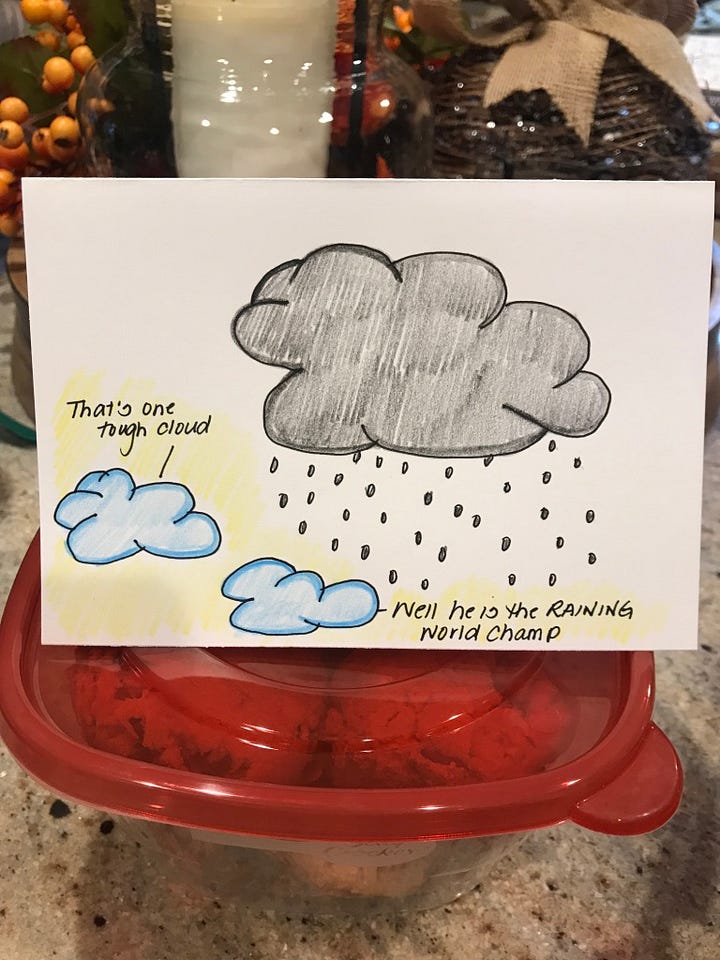 That's one
tough cloud
Well he is the RAINING
World Champ